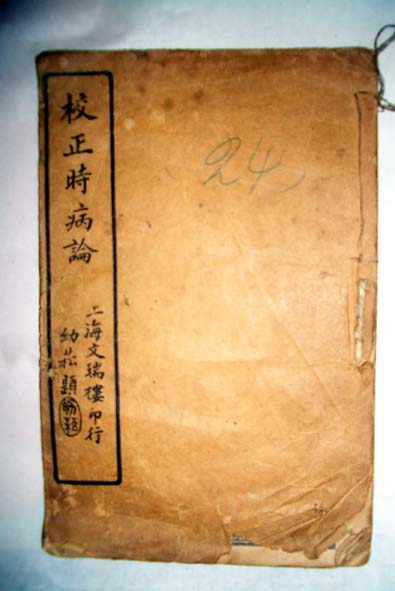 校正時病論
上海文瑞樓印行
幼菘題
24